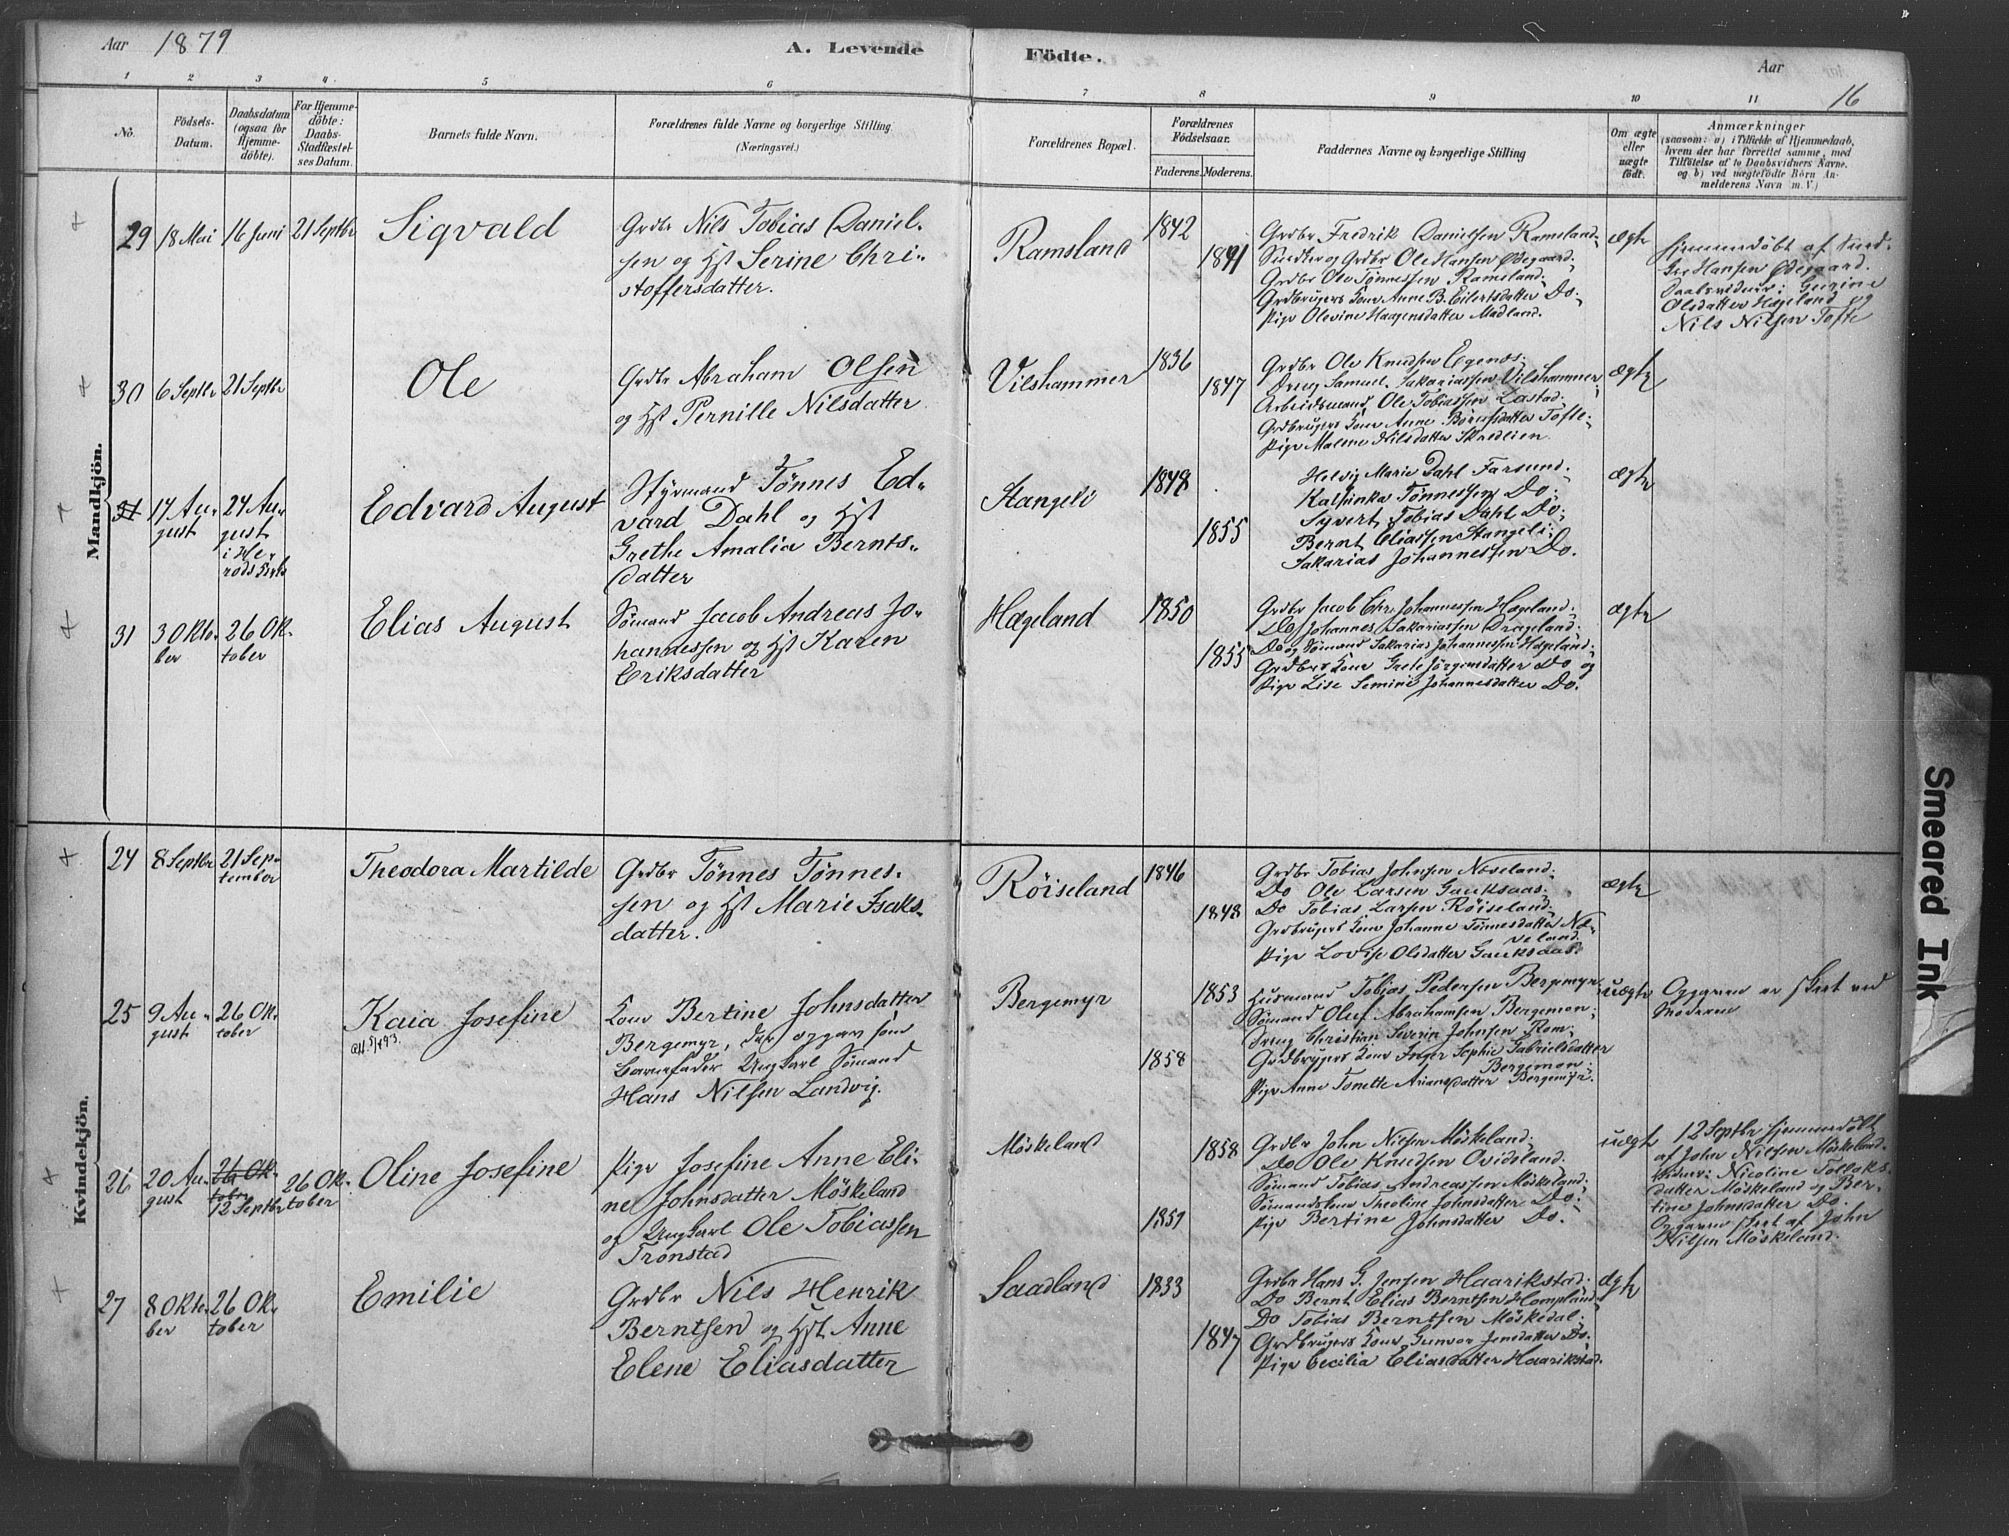 Aar 1879
A. Levende Födte.
Aar
16
1 2 3 4 5 6 7 8 9 10 11
No.
Födsels-
Datum.
Daabsdatum
(ogsaa for
Hjemme-
döbte).
For Hjemme-
döbte:
Daabs-
Stadfæstel-
ses Datum.
Barnets fulde Navn.
Forældrenes fulde Navne og borgerlige Stilling
(Næringsvei.)
Forældrenes Bopæl.
Forældrenes
Födselsaar.
Faderens. Moderens.
Faddernes Navne og borgerlige Stilling
Om ægte
eller
uægte
födt.
Anmærkninger
(saasom: a) i Tilfælde af Hjemmedaab,
hvem der har forrettet samme, med
Tilföielse af to Daabsvidners Navne.
og b) ved uægtefödte Börn An-
melderens Navn (m. V.)
Mandkjön.
29
18 Mai
16 Juni
21 Septbr
Sigvald
Grdbr Nils Tobias Daniel-
sen og Hst Serine Chri-
stoffersdatter.
Ramsland
1842
1841
Grdbr Fredrik Danielsen Ramsland
Snedker og Grdbr Ole Hansen Ødegaard.
Grdbr Ole Tønnessen Ramsland.
Grdbrugers Kone Anne B. Eilertsdatter Do.
Pige Olevine Haagensdatter Madland.
ægte
Hjemmedøbt af
Hansen Ødegaard.
Daabsvidner: Gurine
Olsdatter Hægeland og
Nils Nilsen Tofte
30
6 Septbr
21 Septbr
Ole
Grdbr Abraham Olsen
og Hst Pernille Nilsdatter
Vilshammer
1836
1847
Grdbr Ole Knudsen Egenæs.
Dreng Samuel Sakariassen Vilshammer
Arbeidsmand Ole Tobiassen Lastad.
Grdbrugers Kone Anne Børensdatter Tofte
Pige Malene Nilsdatter Skredlien.
ægte
31
17 Au-
gust
24 Au-
gust
i He-
rods Kirke
Edvard August
Styrmand Tønnes Ed-
vard Dahl og Hst
Grethe Amalia Bernts-
datter
Stangeli
1848
1855
Helvig Marie Dahl Farsund.
Kathinka Tønnessen Do.
Syvert Tobias Dahl Do.
Bernt Eliassen Stangeli.
Sakarias Johannessen Do.
ægte
31
3 Okto-
ber
26 Ok-
tober
Elias August
Sømand Jacob Andreas Jo-
hannessen og Hst Karen
Eriksdatter
Hægeland
1850
1855
Grdbr Jacob Chr. Johannessen Hægeland.
Do Johannes Sakariassen Drageland.
Do og Sømand Sakarias Johannessen Hægeland.
Grdbrs Kone Grete Jörgensdatter Do og
Pige Lise Semine Johannesdatter Do.
ægte
Kvindekjön.
24
8 Septbr
21 Sep-
tember
Theodora Martilde
Grdbr Tönnes Tönnes-
sen og Hst Marie Isaks-
datter.
Röiseland
1846
1848
Grdbr Tobias Johnsen Növeland.
Do Ole Larsen Gauksaas.
Do Tobias Larsen Röiseland.
Grdbrugers Kone Johanne Tönnesdatter Nö-
veland.
Pige Lovise Olsdatter Gauksaas.
ægte
25
9 Au-
gust
26 Ok-
tober
Kaia Josefine
Kone Bertine Johnsdatter
Bergemyr, der opgav som
Barnefader Ungkarl Sömand
Hans Nilsen Landvig.
Bergemyr
1853
1858
Husmand Tobias Pedersen Bergemyr
Sömand Oluf Abrahamsen Bergemon.
Dreng Christian Severin Johnsen Rom.
Grdbrugers Kone Inger Sophie Gabrielsdatter
Bergemon.
Pige Anne Tonette Ariansdatter Bergemyr.
uægte
Opgaven er skeet ved
Moderen
26
20 Au-
gust
26 Ok-
tober
12 Septbr
26 Ok-
tober
Oline Josefine
Pige Josefine Anne Eli-
ne Johnsdatter Möskeland
og Ungkarl Ole Tobiassen
Tronstad
Möskeland
1858
1857
Grdbr John Nilsen Möskeland.
Do Ole Knudsen Ovidsland.
Sömand Tobias Andreassen Möskeland.
Sömandskone Theoline Johnsdatter Do.
Pige Bertine Johnsdatter Do.
uægte
12 Septbr hjemmedöbt
af John Nilsen Möskeland.
Vidner: Nicoline Tollaks-
datter Möskeland og Ber-
tine Johnsdatter Do.
Opgaven skeet af John
Nilsen Möskeland.
27
8 Okto-
ber
26 Ok-
tober
Emilie
Grdbr Nils Henrik
Berntsen og Hst Anne
Elene Eliasdatter
Saadland
1833
1847
Grdbr Hans G. Jensen Haarikstad.
Do Bernt Elias Berntsen Hompland.
Do Tobias Berntsen Möskedal.
Grdbrugers Kone Gunvor Jensdatter Do.
Pige Cecilia Eliasdatter Haarikstad.
ægte
Smeared Ink